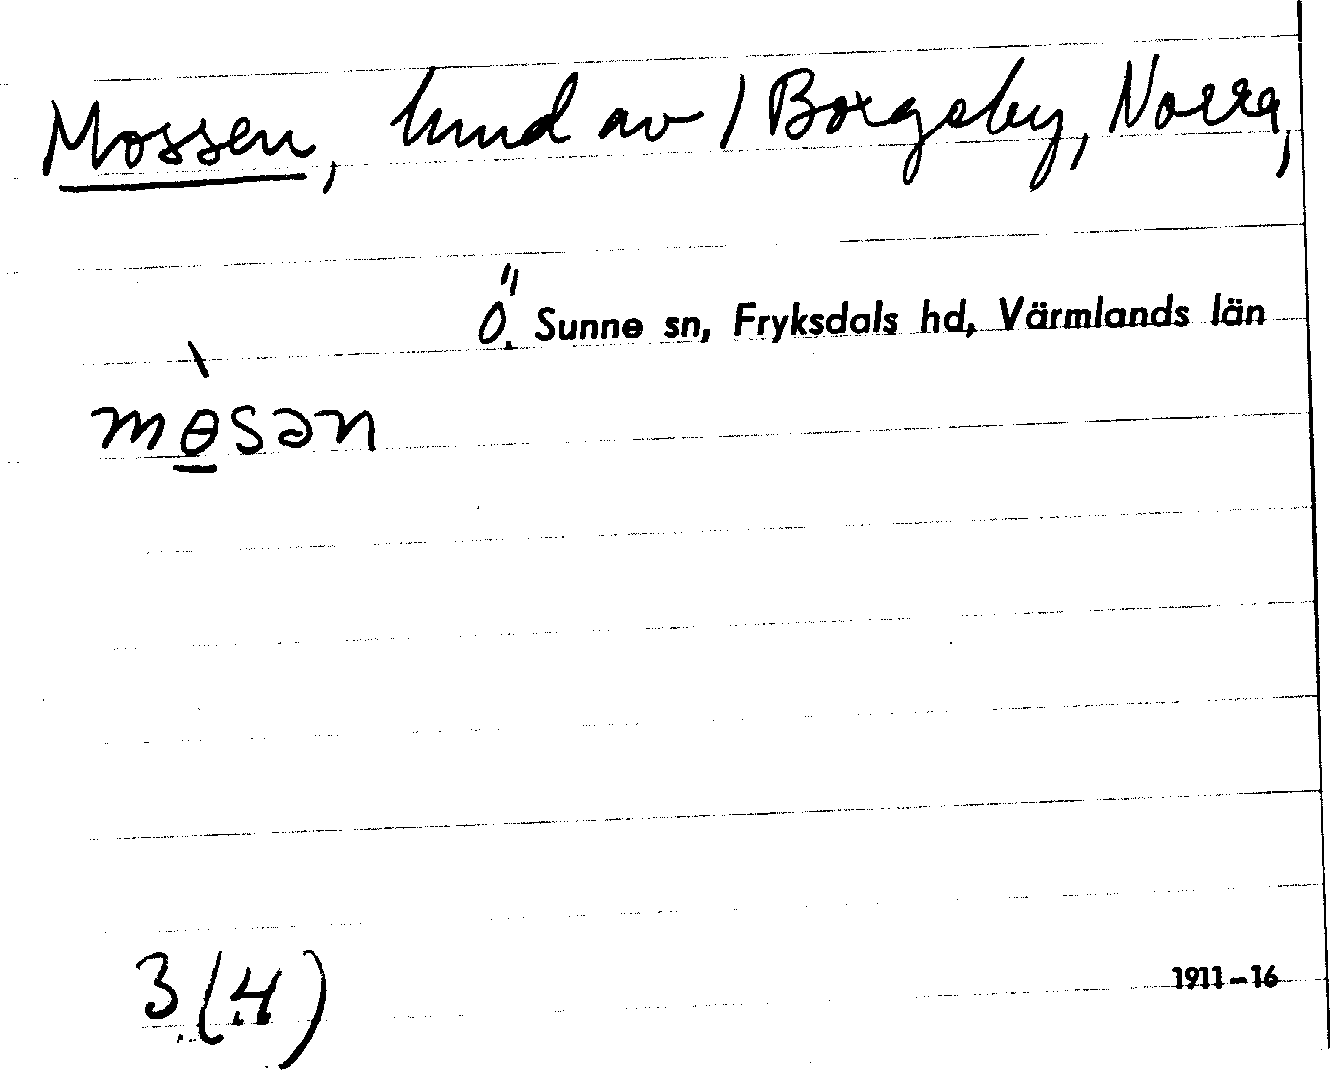 Mossen, lund av / Borgsby, Norra,
Ö. Sunne sn, Fryksdals hd, Värmlands län
mɵ̀sən
3 (4)
1911–16